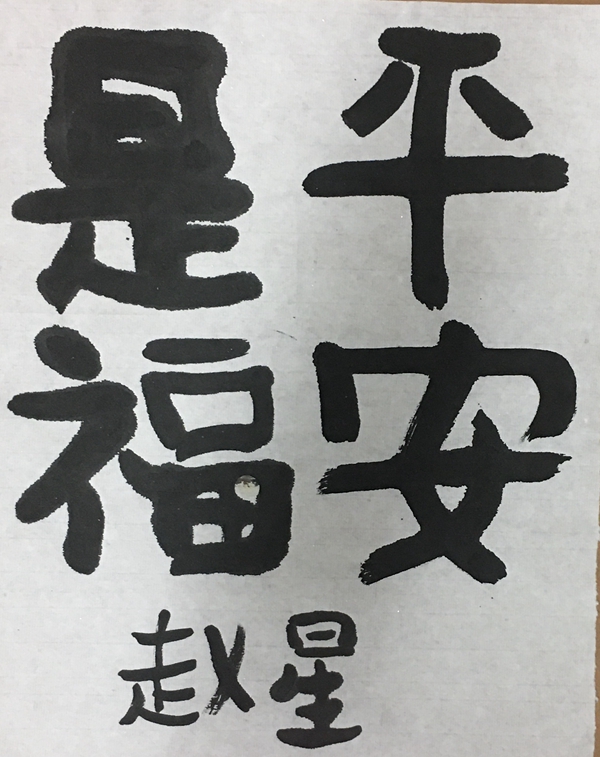 平安
是福
赵星